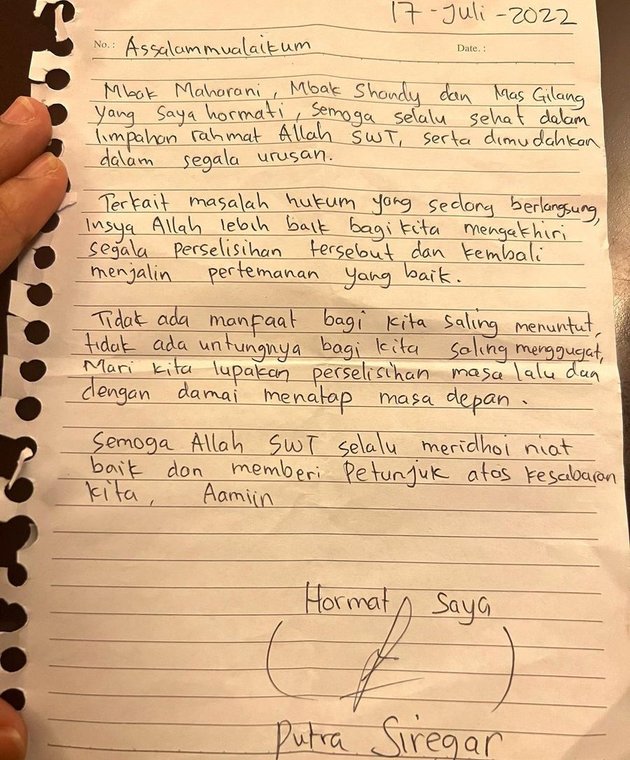 17-Juli-2022
No.: Assalammualaikum Date.:
Mbak Maharani, Mbak Shandy dan Mas Gilang
yang saya hormati, semoga selalu sehat dalam
limpahan rahmat Allah SWT, serta dimudahkan
dalam segala urusan.
Terkait masalah hukum yang sedang berlangsung,
Insya Allah lebih baik bagi kita mengakhiri
segala perselisihan tersebut dan kembali
menjalin pertemanan yang baik.
Tidak ada manfaat bagi kita saling menuntut,
tidak ada untungnya bagi kita saling menggugat,
Mari kita lupakan perselisihan masa lalu dan
dengan damai menatap masa depan.
Semoga Allah SWT selalu meridhoi niat
baik dan memberi Petunjuk atas kesabaran
kita, Aamiin
Hormat Saya
Putra Siregar